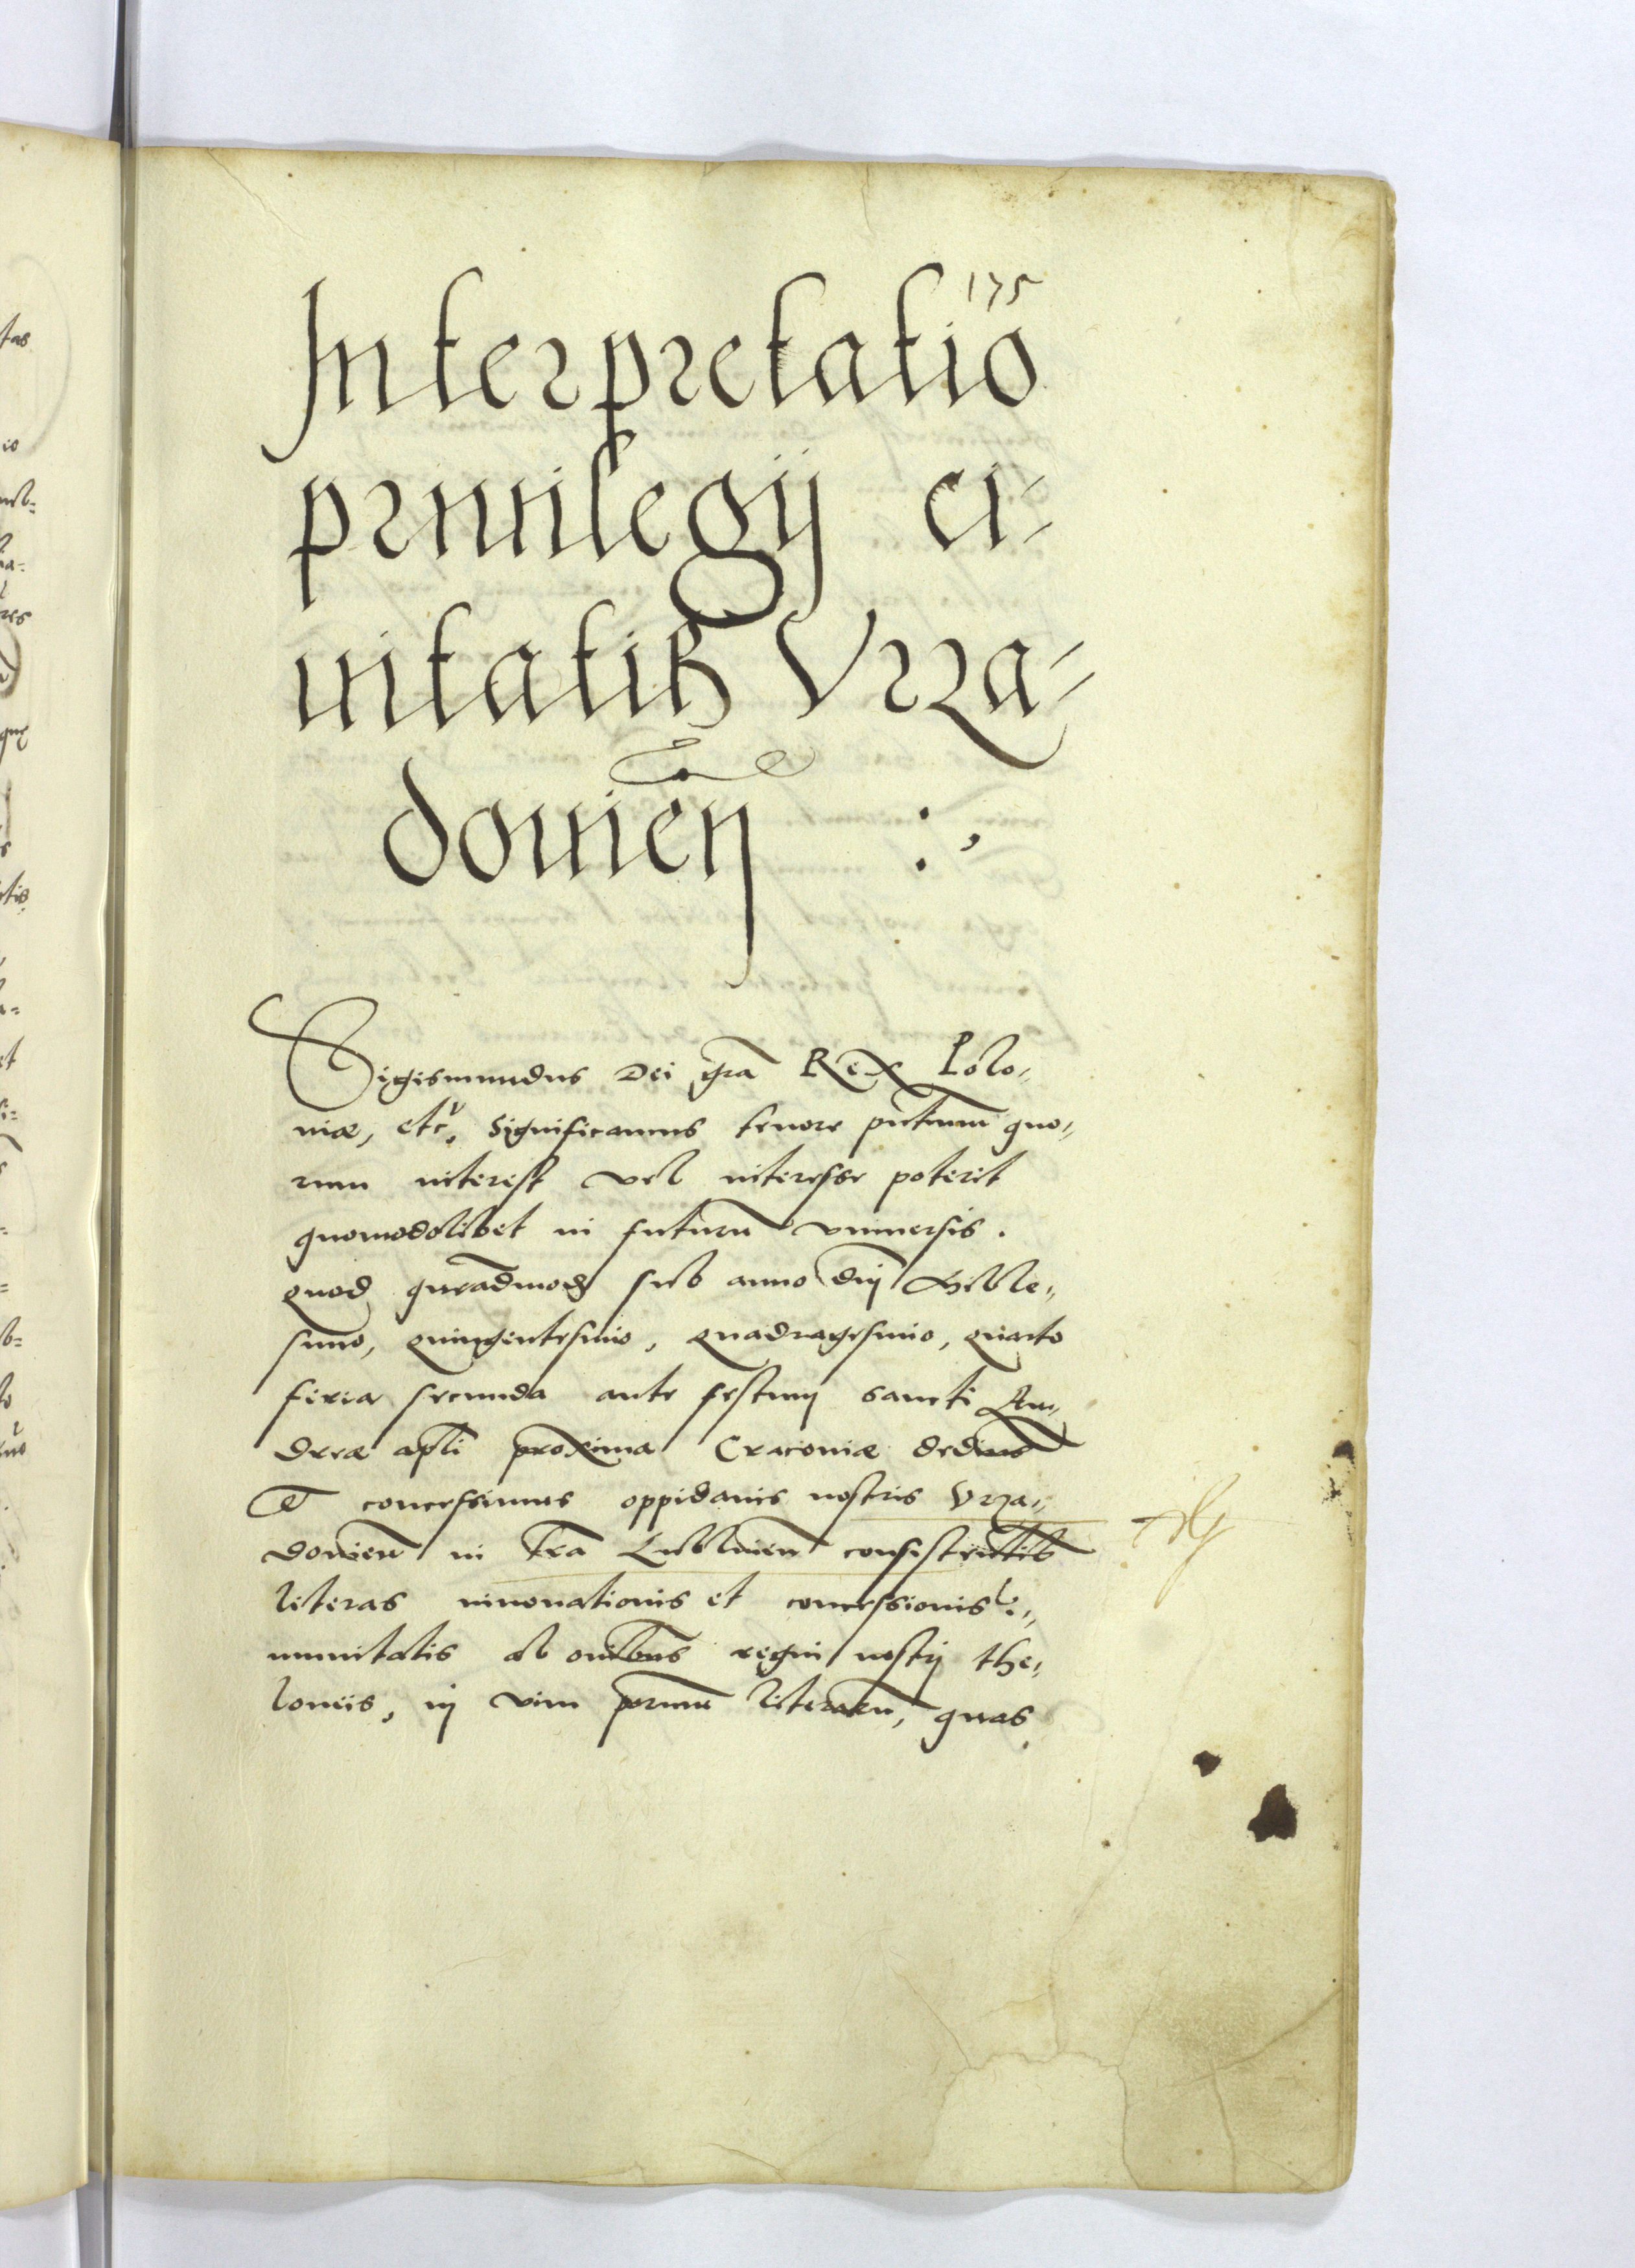 175
Interpretatio
priuilegij ci-
uitatis Vrza-
douien̄ :,
Sigismundus Dei gr̄a Rex Polo-
niæ, etc. Significamus tenore pn̄tium quo-
rum interest vel interesse poterit
quomodolibet in futurū vniuersis.
Quod queadmod sub anno dn̄j Mille-
simo, Quingentesimo, Quadragesimo, Quarto
feria secunda ante festum sancti An-
dreæ ap̄li proxima Cracouiæ dedim̄s
Et concessimus oppidanis nostris Vrza-
douien̄ in tr̄a Lublinien̄ consistentib
literas innouationis et concessionis i-
munitatis ab om̄ibus regni nostrj the-
loneis, in vim literarū, quas